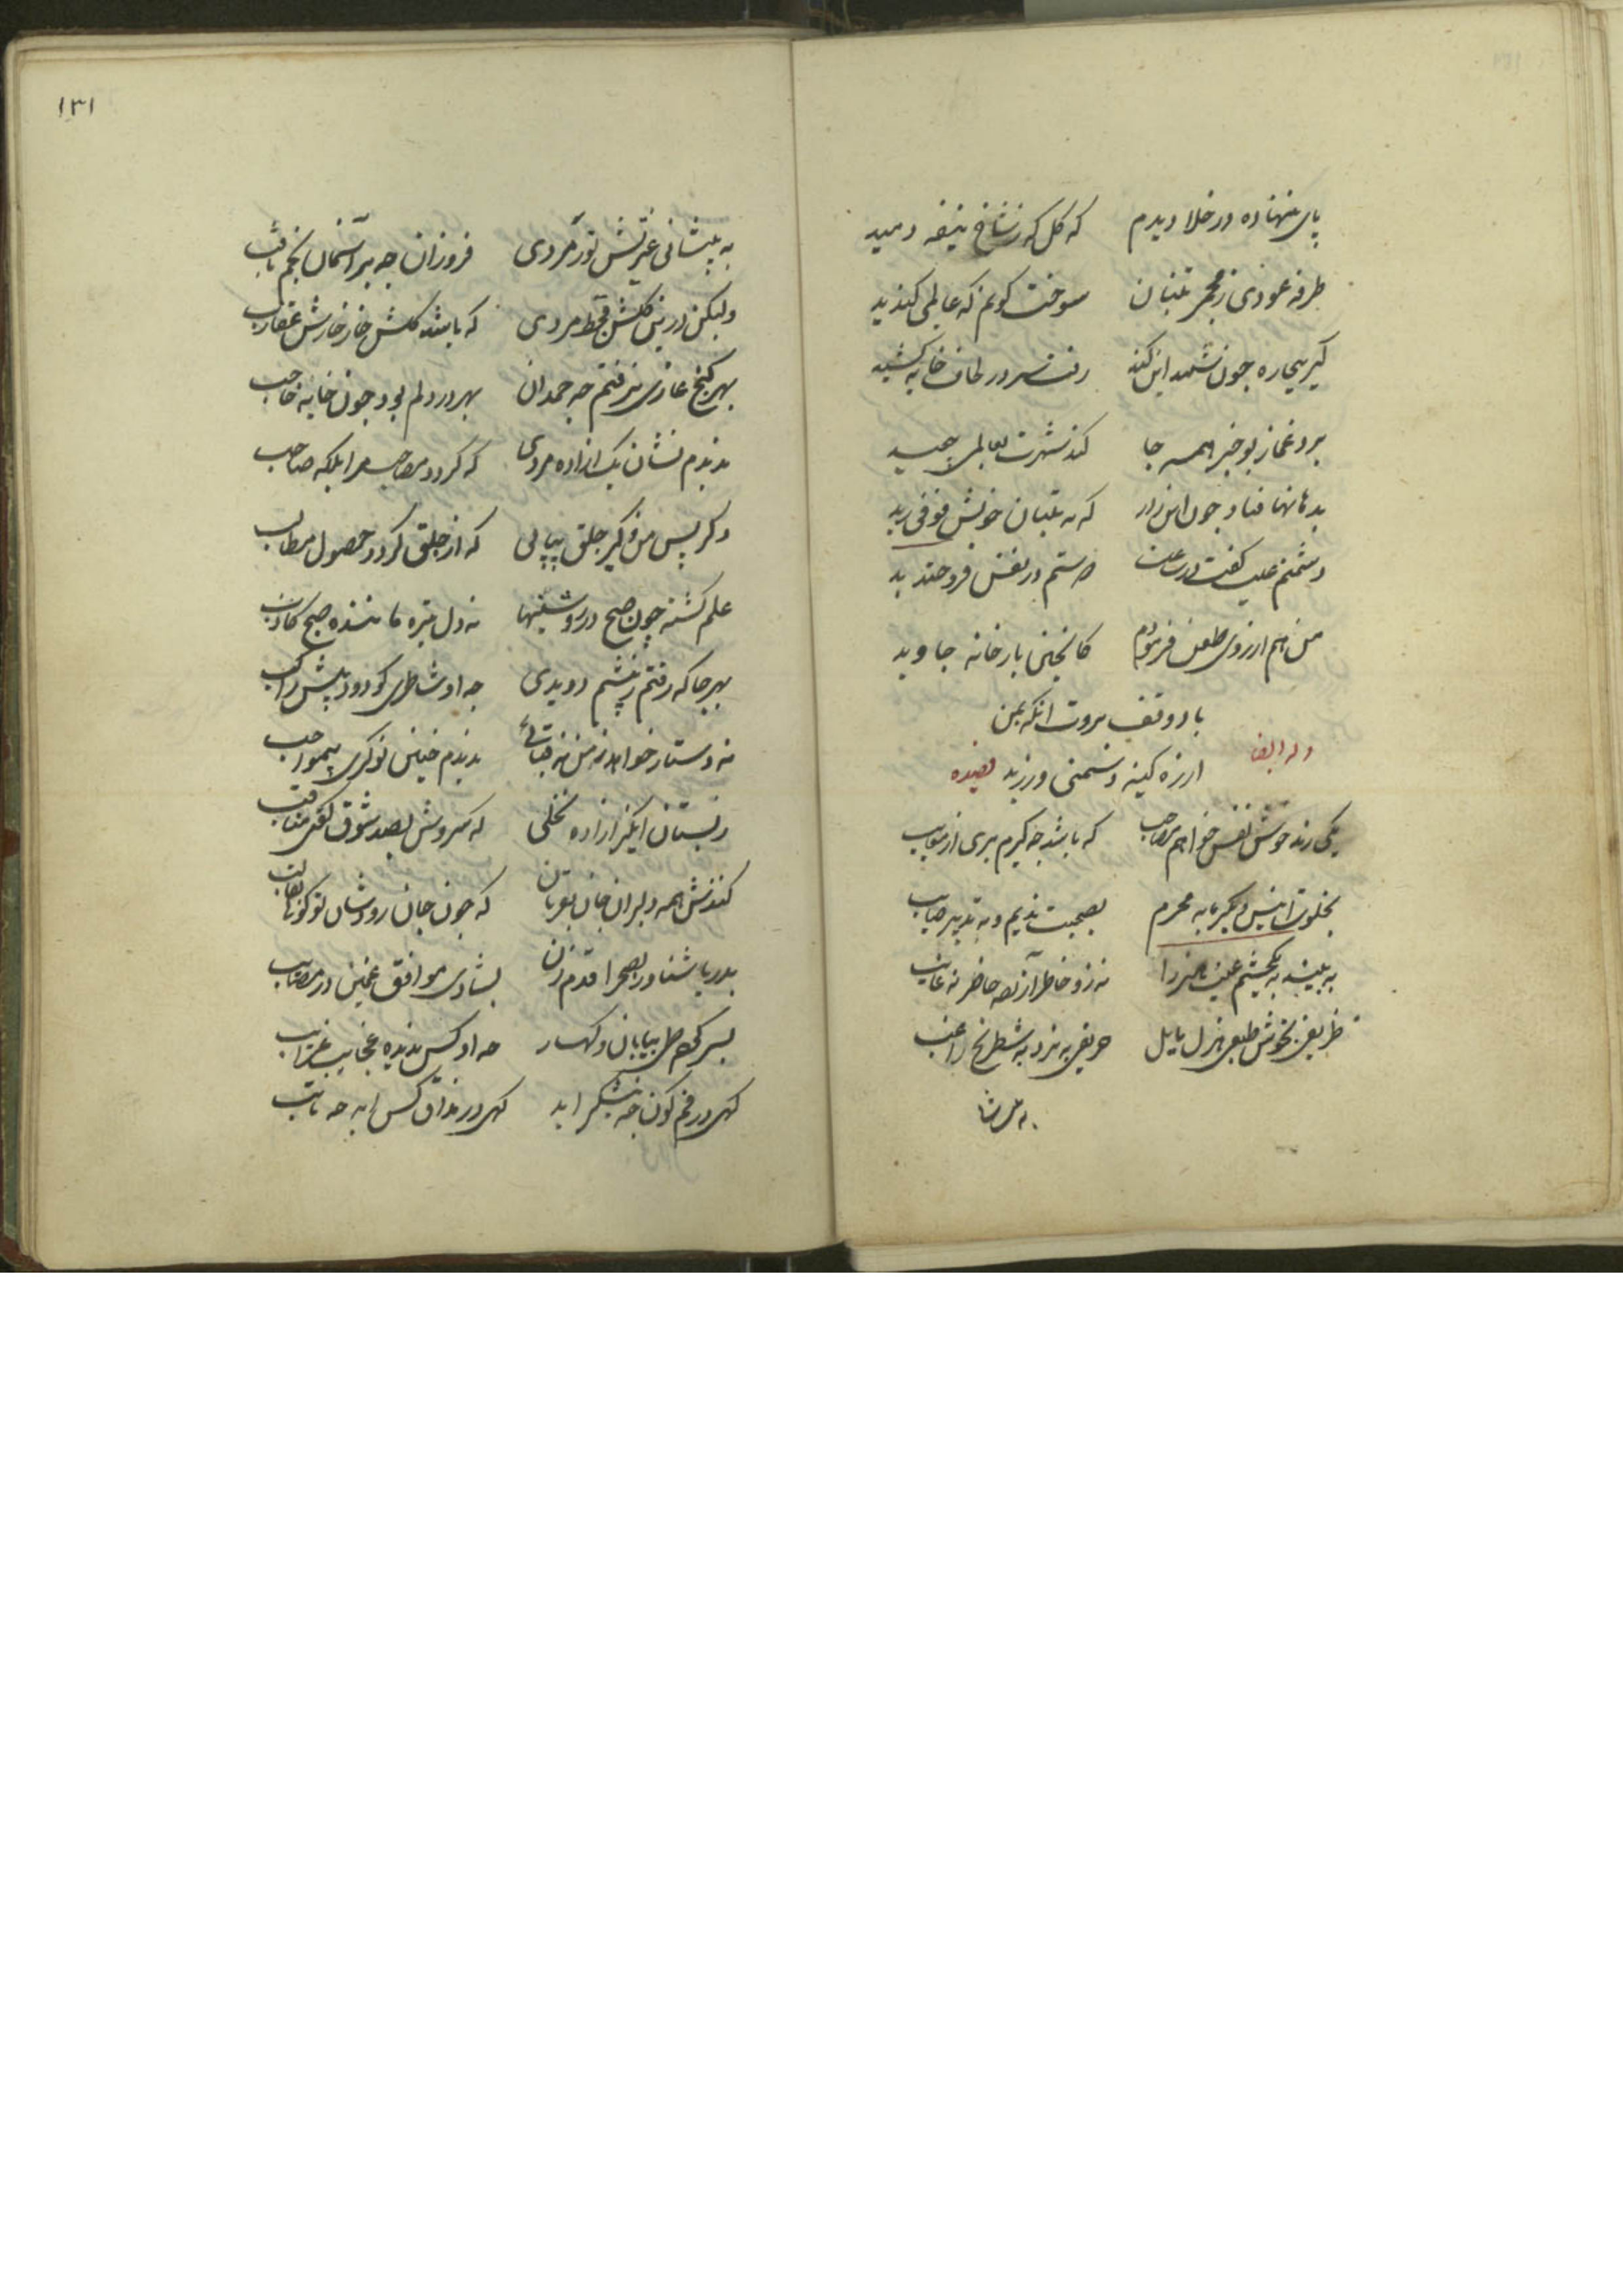 پای ننهاده در خلا دیدم که گل که ز شاخ نیفه دمید
طرفه عودی ز مجمر تنبان سوخت کونم که عالمی گندید
کیر بیچاره چون شمید این گند رفت سر در لحاف خایه کشید
برد غماز بو خبر همه جا کند شهرت بعالمی جهید
بدهانها فتاد چون این راز که به تنبان خویش فوقی رید
دشمنم عیب گفت در نفس فروختدید
من هم از روی طعن فرمودم کانچنین بارخانه جاوید
باد وقف بروت انکه بمن
وله ایضا
از ره کینه دشمنی ورزید قصیده
یکی رند خوش نفس خواهم مصاحب که باشد چه کیرم بری از معایب
بخلوت انیس و بگرمابه محرم بصحبت ندیم و به تدبیر صایب
به بیند به یکچشم عیب هنر را نه زو خاطر آزرده حاضر نه غایب
ظریفی بخوش طبعی و هزل مایل حریفی به نرد و به شطرنج راغب
به پیشا
۱۳۱
به پیشانی غیرتش نور مردی فروزان چه بر آسمان نجم ثاقب
ولیکن درین گلشن قحط مردی که باشد گلش خار خارش عقارب
بهر کنج غاری نرفتم چه حمدان بهر در دلم بود چون خایه حاجب
ندیدم نشان یک ازاده مردی که گردد مصاحب مرا بلکه صاحب
دگر پس من و کیر جلق پیاپی که از جلق گردد حصول مطالب
علم گشته چون صبح در روشنیها نه دل تیره مانند صبح کاذب
بهر جا که رفتم ز پیشم دویدی چه او شاطری کو دود پیش راکب
نه دستار خواهد ز من نه قبائی ندیدم چنین نوکری بیمواجب
ز بستان ازاده نخلی که سروش بصد شوق گفتی مناقب
کنندش همه دلبران جان بقربان که چون جان رود شان تو گوئی بقالب
بدریا شناور بصحرا قدم زن بشادی موافق غمین در مصایب
بسر کرده طی بیابان و کهسار چه او کس ندیده عجایب غرایب
گهی در فم کون چه نیشکر اید گهی در مذاق کس آید چه نابت